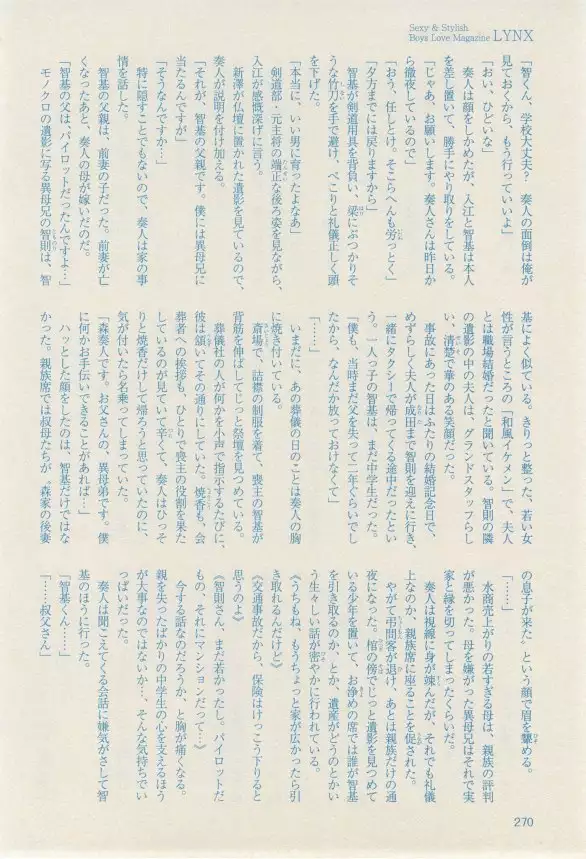 Sexy & Stylish
Boys Love Magazine LYNX
「智くん、学校大丈夫? 奏人の面倒は俺が
見ておくから、もう行っていいよ」
「おい、ひどいな」
奏人は顔をしかめたが、入江と智基は本人
を差し置いて、勝手にやり取りをしている。
「じゃあ、お願いします。奏人さんは昨日か
ら徹夜しているので」
「おう、任しとけ。そこらへんも労っとく」
「夕方までには戻りますから」
智基が剣道用具を背負い、梁にぶつかりそ
うな竹刀を手で避け、ぺこりと礼儀正しく頭
を下げた。
「本当に、いい男に育ったよなあ」
剣道部・元主将の端正な後ろ姿を見ながら、
入江が感慨深げに言う。
新澤が仏壇に置かれた遺影を見ているので、
奏人が説明を付け加える。
「それが、智基の父親です。僕には異母兄に
当たるんですが」
「そうなんですか…」
特に隠すことでもないので、奏人は家の事
情を話した。
智基の父親は、前妻の子だった。前妻が亡
くなったあと、奏人の母が嫁いだのだ。
「智基の父は、パイロットだったんですよ…」
モノクロの遺影に写る異母兄の智則は、智
基によく似ている。きりっと整った、若い女
性が言うところの「和風イケメン」で、夫人
とは職場結婚だったと聞いている。智則の隣
の遺影の中の夫人は、グランドスタッフらし
い、清楚で華のある笑顔だった。
事故にあった日はふたりの結婚記念日で、
めずらしく夫人が成田まで智則を迎えに行き、
一緒にタクシーで帰ってくる途中だったとい
う。一人っ子の智基は、まだ中学生だった。
「僕も、当時まだ父を失って二年ぐらいでし
たから、なんだか放っておけなくて」
「……」
いまだに、あの葬儀の日のことは奏人の胸
に焼き付いている。
斎場で、詰襟の制服を着て、喪主の智基が
背筋を伸ばしてじっと祭壇を見つめている。
葬儀社の人が何かを小声で指示するたびに、
彼は頷いてその通りにしていた。焼香も、会
葬者への挨拶も、ひとりで喪主の役割を果た
しているのが見ていて辛くて、奏人はひっそ
りと焼香だけして帰ろうと思っていたのに、
気が付いたら名乗ってしまっていた。
「森奏人です。お父さんの、異母弟です。僕
に何かお手伝いできることがあれば…」
ハッとした顔をしたのは、智基だけではな
かった。親族席では叔母たちが、〝森家の後妻
の息子が来た〟という顔で眉を顰める。
「……」
水商売上がりの若すぎる母は、親族の評判
が悪かった。母を嫌がった異母兄はそれで実
家と縁を切ってしまったくらいだ。
奏人は視線に身が竦んだが、それでも礼儀
上なのか、親族席に座ることを促された。
やがて弔問客が退け、あとは親族だけの通
夜になった。棺の傍でじっと遺影を見つめて
いる少年を置いて、お浄めの席では誰が智基
を引き取るのか、とか、遺産がどうのとかい
う生々しい話が密やかに行われている。
《うちもね、もうちょっと家が広かったら引
き取れるんだけど》
《交通事故だから、保険はけっこう下りると
思うのよ》
《智則さん、まだ若かったし。パイロットだ
もの、それにマンションだって…》
今する話なのだろうか、と胸が痛くなる。
親を失ったばかりの中学生の心を支えるほう
が大事なのではないか…、そんな気持ちでい
っぱいだった。
奏人は聞こえてくる会話に嫌気がさして智
基のほうに行った。
「智基くん……」
「……叔父さん」
270